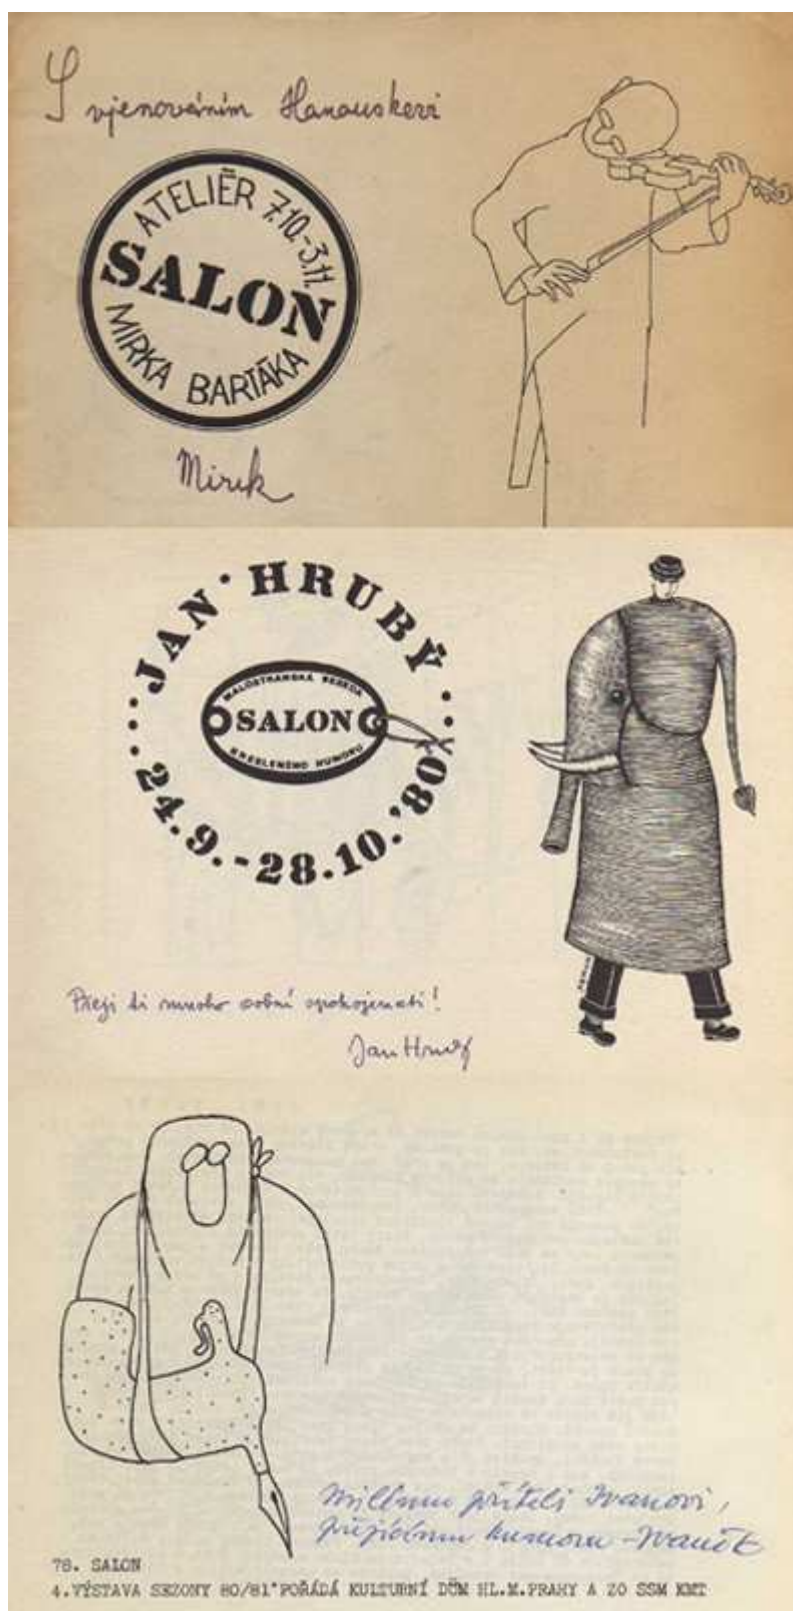 S vjenováním Hanouskovi
ATELIÉR 7.10.-3.11.
SALON
MIRKA BARTÁKA
Mirek
JAN HRUBÝ
MALOSTRANSKÁ BESEDA
SALON
KRESLENÉHO HUMORU
24.9.-28.10.'80
Přeji ti mnoho osobní spokojenosti!
Jan Hrubý
Milému příteli Ivanovi,
humoru - Ivan
78. SALON
4.VÝSTAVA SEZONY 80/81 POŘÁDÁ KULTURNÍ DŮM HL.M.PRAHY A ZO SSM KMT